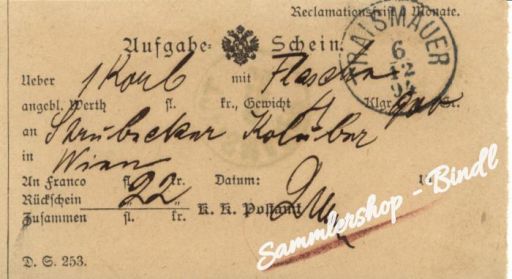 Reclamationsfrist 6 Monate.
Aufgabe- Schein.
TRAISMAUER
6
12
94
Ueber 1 Korb mit Flaschen
angebl. Werth fl. kr., Gewicht 4 Klgr. Gr.
an Strubecker Koluber
in Wien
An Franco fl. 22 kr. Datum:
Rückschein
Zusammen fl. kr. K. K. Postamt
D. S. 253.
Sammlershop - Bindl